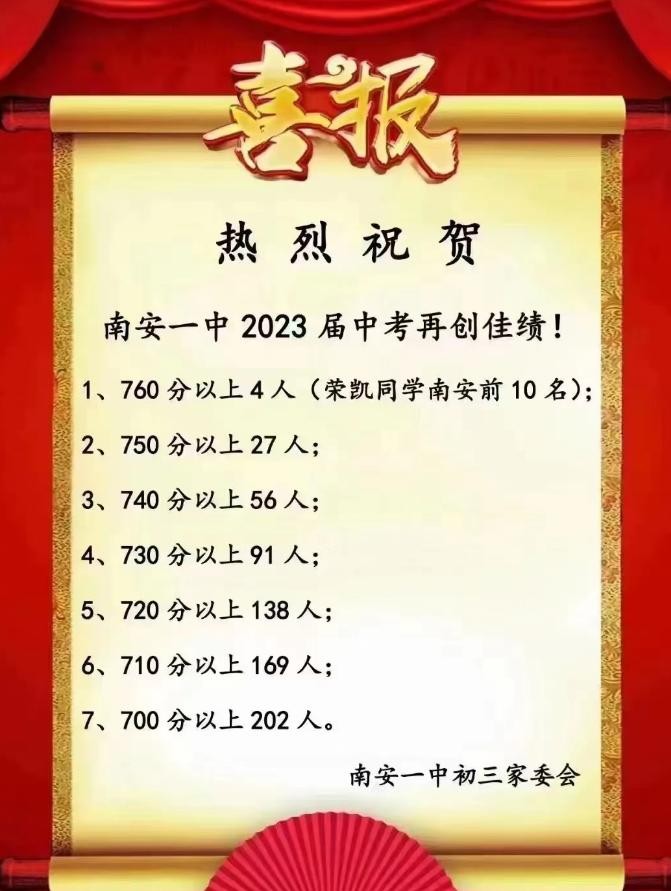 喜报
热烈祝贺
南安一中2023届中考再创佳绩！
1、760分以上4人（荣凯同学南安前10名）；
2、750分以上27人；
3、740分以上56人；
4、730分以上91人；
5、720分以上138人；
6、710分以上169人；
7、700分以上202人。
南安一中初三家委会